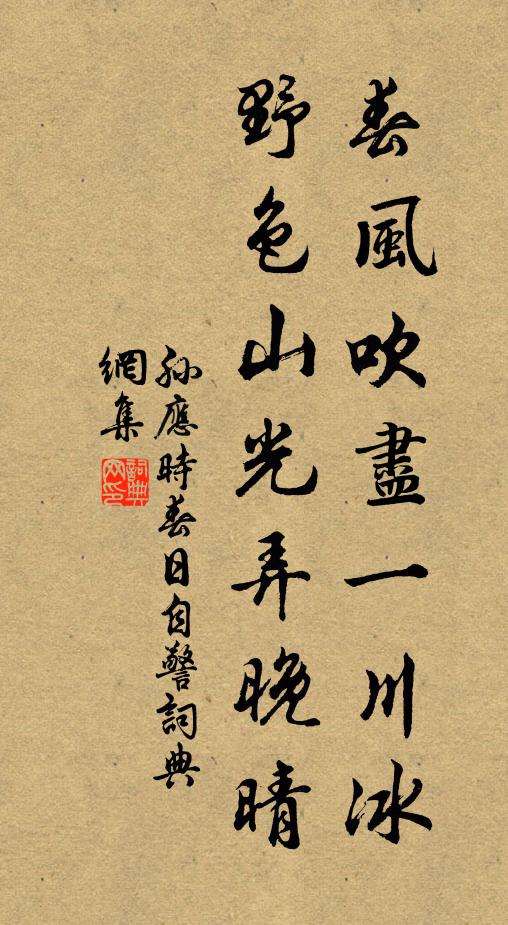 春風吹盡一川冰
野色山光弄晚晴
孫應時春日自警詞典
網集
詞典網印